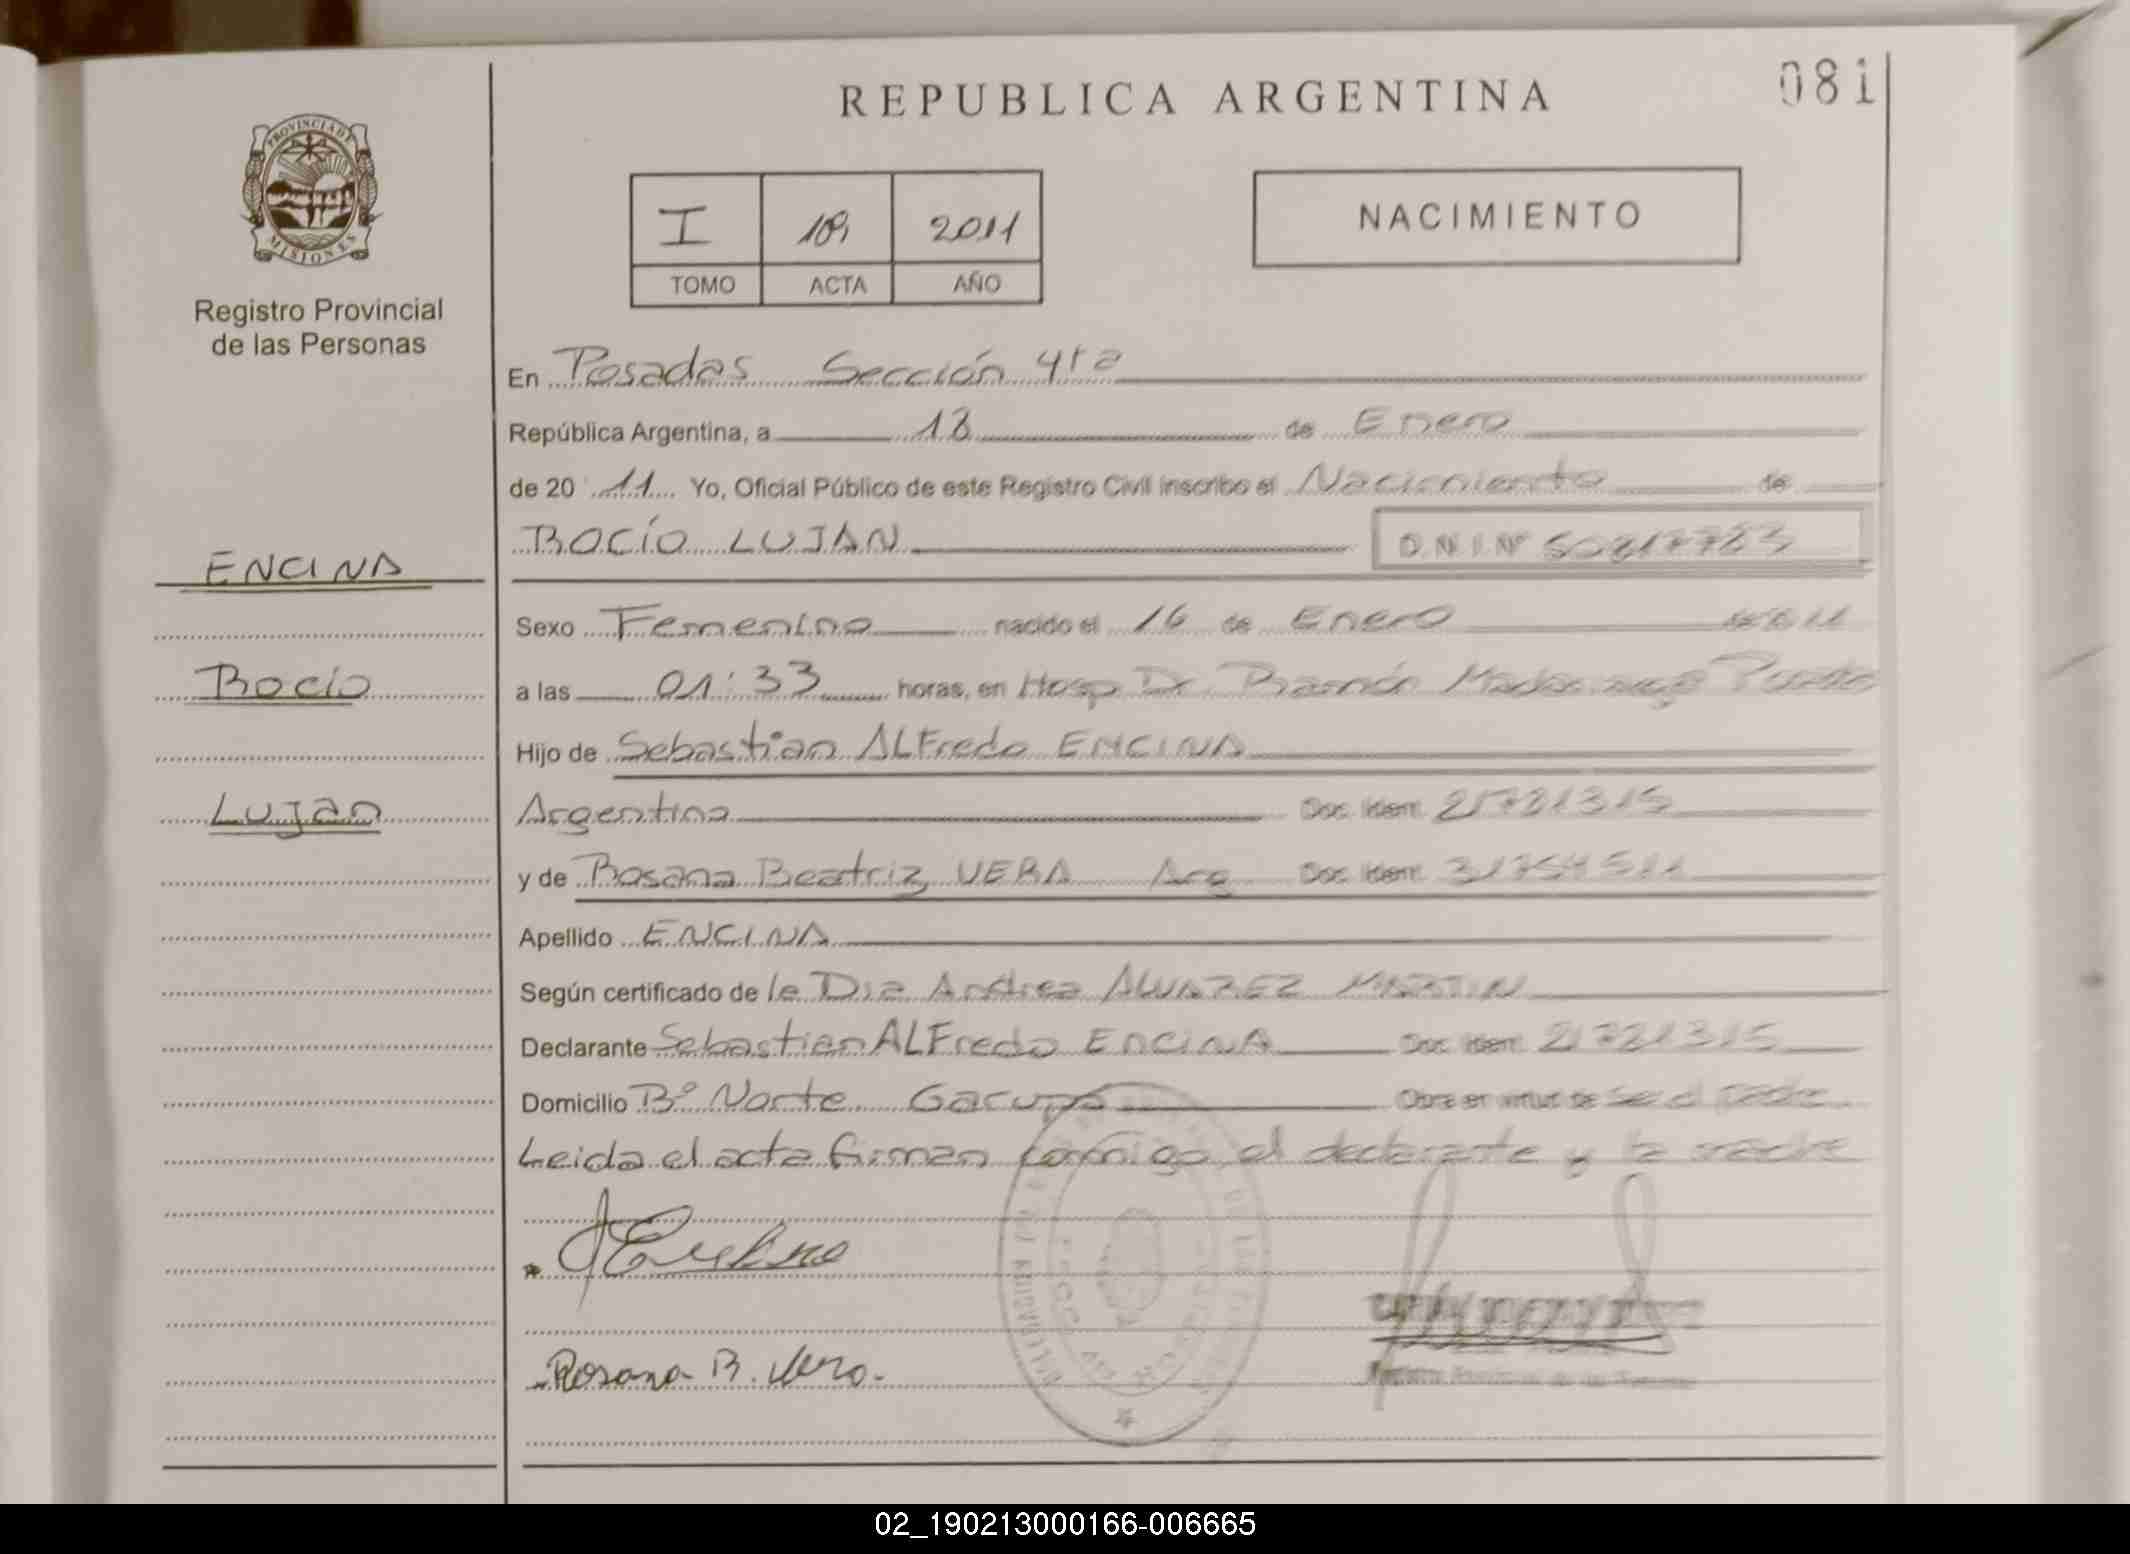 REPUBLICA ARGENTINA
081
PROVINCIA DE
MISIONES
Registro Provincial
de las Personas
I 2011
TOMO ACTA AÑO
NACIMIENTO
En Posadas Sección 4ta
República Argentina, a 18 de Enero
de 20 11 Yo, Oficial Público de este Registro Civil inscribo el Nacimiento de
ROCÍO LUJAN D.N.I.Nº
ENCINA
Sexo Femenino nacido el 16 de Enero
Rocio
a las 01:33 horas, en Hosp Dr. Ramón Madariaga
Hijo de Sebastian ALFredo ENCINA
Lujan
Argentina Doc. Ident. 21721315
y de Rosana Beatriz VERA Arg Doc. Ident. 31754511
Apellido ENCINA
Según certificado de la Dra Andrea ALVAREZ MARTIN
Declarante Sebastian ALFredo ENCINA Doc. Ident. 21721315
Domicilio Bº Norte Garupá Obra en virtud de ser el padre
Leida el acta firman conmigo el declarante y la madre
Rosana B. Vera.
02_190213000166-006665